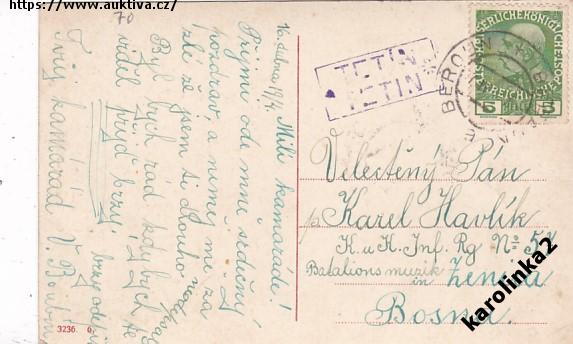 https://www.auktiva.cz/
70
16. dubna 1912. Milí kamaráde!
Přijmi ode mně srdečný
pozdrav, a neměj mi za
zlé že jsem ti dlouho nepsal
Byl bych rad kdybych tě
viděl přijď brzy.
brzy odpiš
Tvůj kamarád V.
3236. 0.
TETÍN
TETIN
BEROUN
KAISERLICHE KÖNIGLICHE
ÖSTERREICHISCHE POST
5 5
Velectěný Pán
Karel Havlík
K. u K. Inf. Rg No 57
Batalions muzik in Zenica
Bosna.
karolinka2